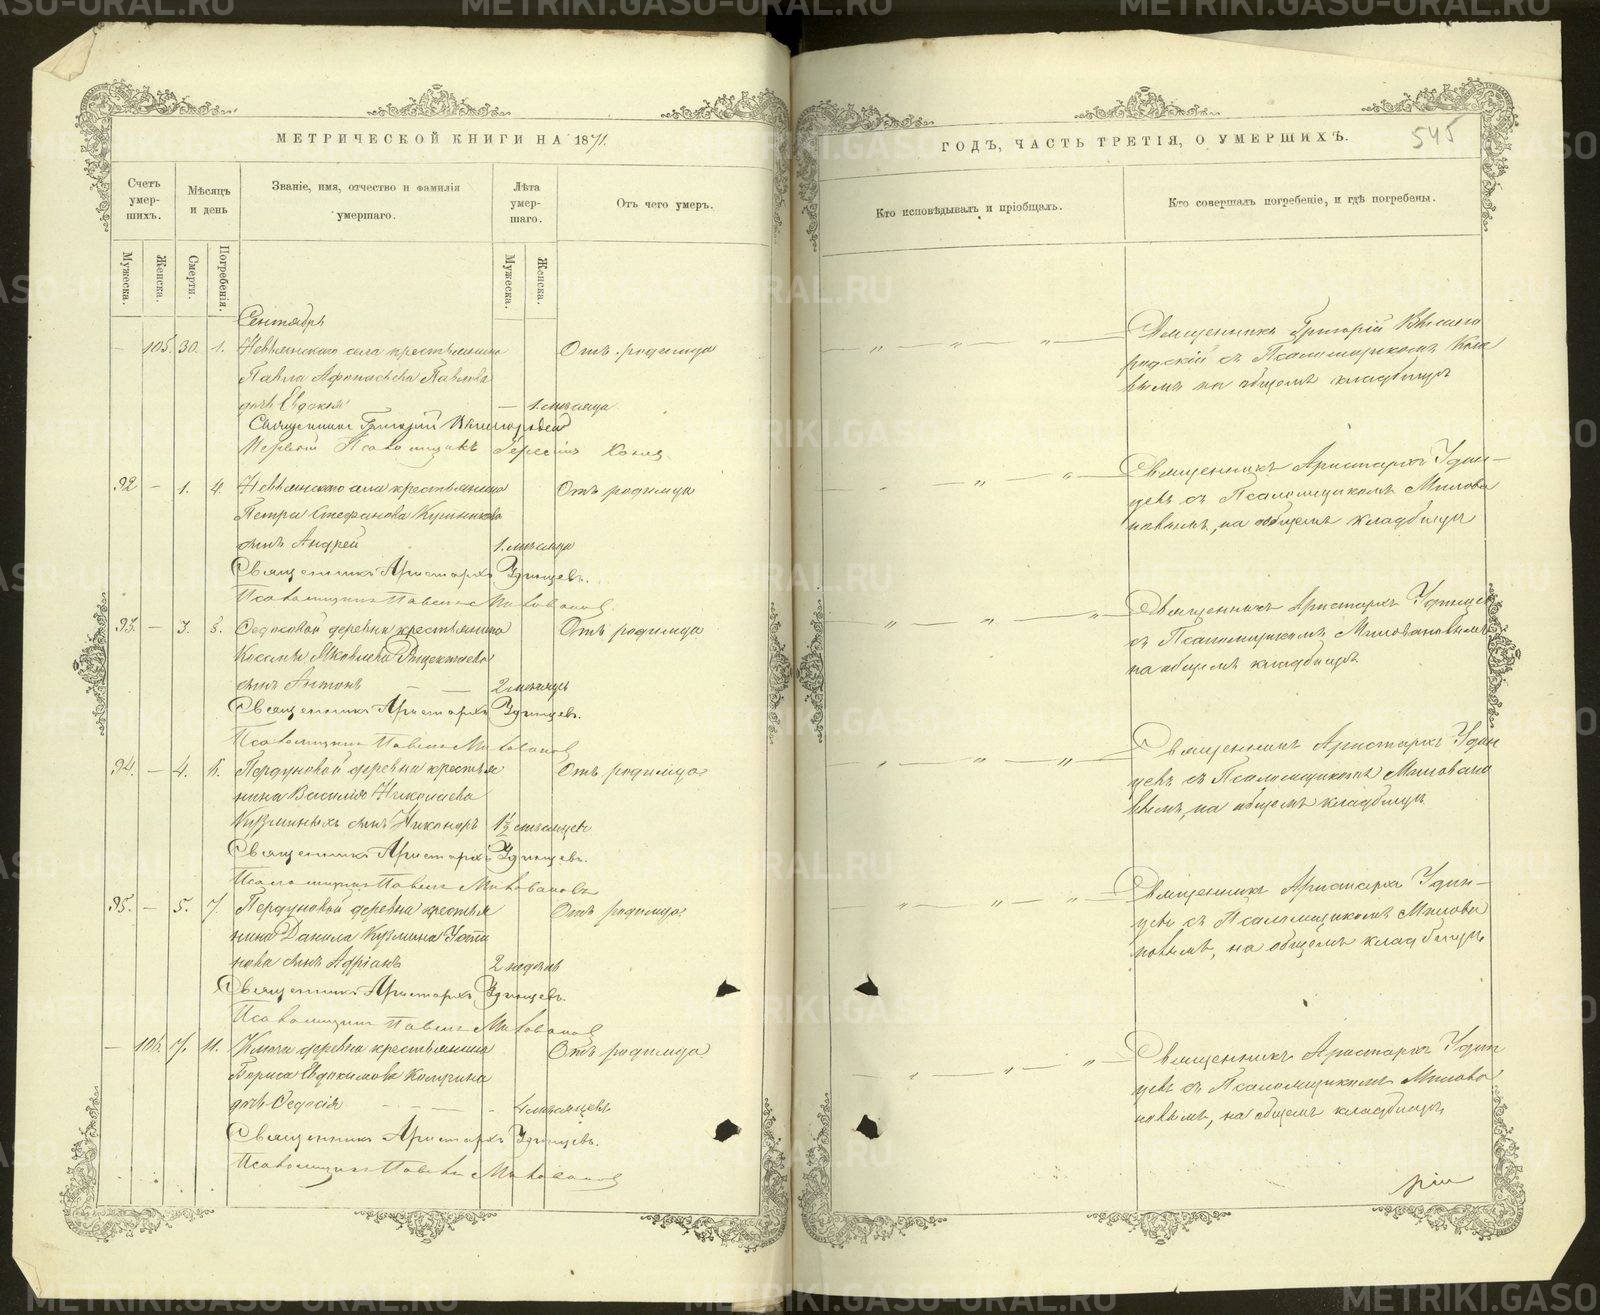 МЕТРИЧЕСКОЙ КНИГИ НА 1871.
Счетъ умершихъ.
Мѣсяцъ и день
Званіе, имя, отчество и фамилія умершаго.
Лѣта умершаго.
Отъ чего умеръ.
Мужеска.
Женска.
Смерти.
Погребенія.
Мужеска.
Женска.
Сентябрь
— 105. 30. 1. Невьянскаго села крестьянина Отъ родимца
Павла Афонасьева Павлова
дочь Евдокія — 1. мѣсяца
Священникъ Григорій
Псаломщикъ
92 — 1. 4. Невьянскаго села крестьянина Отъ родимца
Петра Стефанова
сынъ Андрей 1. мѣсяца
Священникъ Аристархъ Удинцевъ.
Псаломщикъ Павелъ Миловановъ
93. — 3. 8. Ѳедосовой деревни крестьянина Отъ родимца
Космы Яковлева
сынъ Антонъ 2 мѣсяцъ
Священникъ Аристархъ Удинцевъ.
Псаломщикъ Павелъ Миловановъ
94. — 4. деревни крестья Отъ родимца
нина Василія Николаева
Кузминыхъ сынъ Никаноръ 1½ мѣсяцевъ
Священникъ Аристархъ Удинцевъ.
Псаломщикъ Павелъ Миловановъ
95. — 5. 7. деревни крестья Отъ родимца
нина Данила Кузмина Усти
нова сынъ Адріанъ 2 недѣль
Священникъ Аристархъ Удинцевъ.
Псаломщикъ Павелъ Миловановъ
— 106. 7. 11. Ключи деревни крестьянина Отъ родимца
Бориса Евдокимова
дочь Ѳедосія 4 мѣсяцевъ
Священникъ Аристархъ Удинцевъ.
Псаломщикъ Павелъ Миловановъ
ГОДЪ, ЧАСТЬ ТРЕТІЯ, О УМЕРШИХЪ.
545
Кто исповѣдывалъ и пріобщалъ.
Кто совершалъ погребеніе, и гдѣ погребены.
Священникъ Григорій
съ Псаломщикомъ
на общемъ кладбищѣ
Священникъ Аристархъ Удин-
цевъ съ Псаломщикомъ Милова
новымъ, на общемъ кладбищѣ
Священникъ Аристархъ Удинцевъ
съ Псаломщикомъ Миловановымъ
на общемъ кладбищѣ
Священникъ Аристархъ Удин
цевъ съ Псаломщикомъ Миловано
вымъ, на общемъ кладбищѣ
Священникъ Аристархъ Удин-
цевъ съ Псаломщикомъ Милова
новымъ, на общемъ кладбищѣ
Священникъ Аристархъ Удин
цевъ съ Псаломщикомъ Милова
новымъ, на общемъ кладбищѣ
METRIKI.GASO-URAL.RU